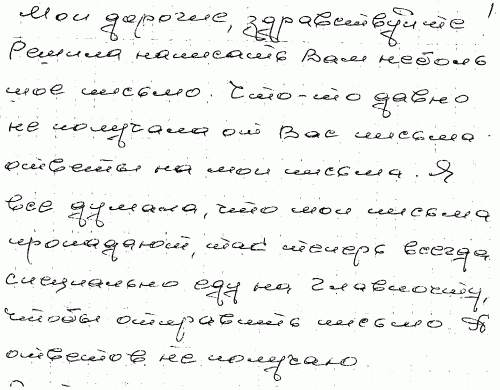 Мои дорогие, здравствуйте 1
Решила написать Вам неболь
шое письмо. Что-то давно
не получала от Вас письма
ответы на мои письма. Я
все думала, что мои письма
пропадают, так теперь всегда
специально еду на Главпочту,
чтобы отправить письмо. Я
ответов не получаю